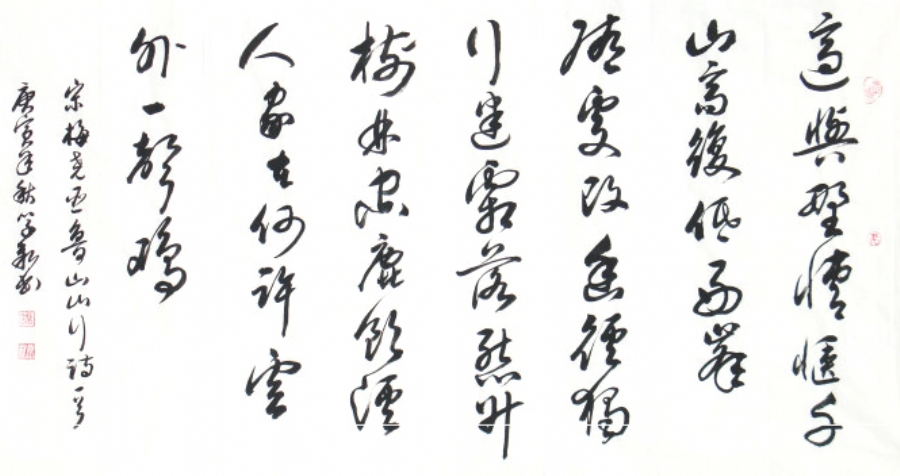 適與野情愜千
山高復低好峯
隨處改幽徑獨
行迷霜落熊升
樹林空鹿飲溪
人家在何許雲
外一聲鷄
宋梅堯臣魯山山行詩一首
庚寅年秋書